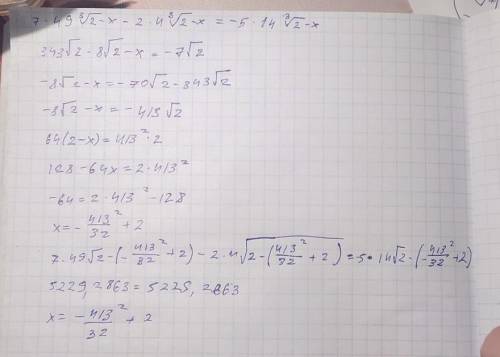 7·49∛2-x - 2·4∛2-x = -5·14∛2-x
343√2 - 8√2-x = -7√2
-8√2-x = -70√2-343√2
-8√2-x = -413√2
64(2-x) = 413²·2
128-64x = 2·413²
-64 = 2·413²-128
x = -413²/32 + 2
7·49√2-(-413²/32+2) - 2·4√2-(413²/32+2) = 5·14√2-(-413²/32+2)
5229,2863 = 5229,2863
x = -413²/32 + 2